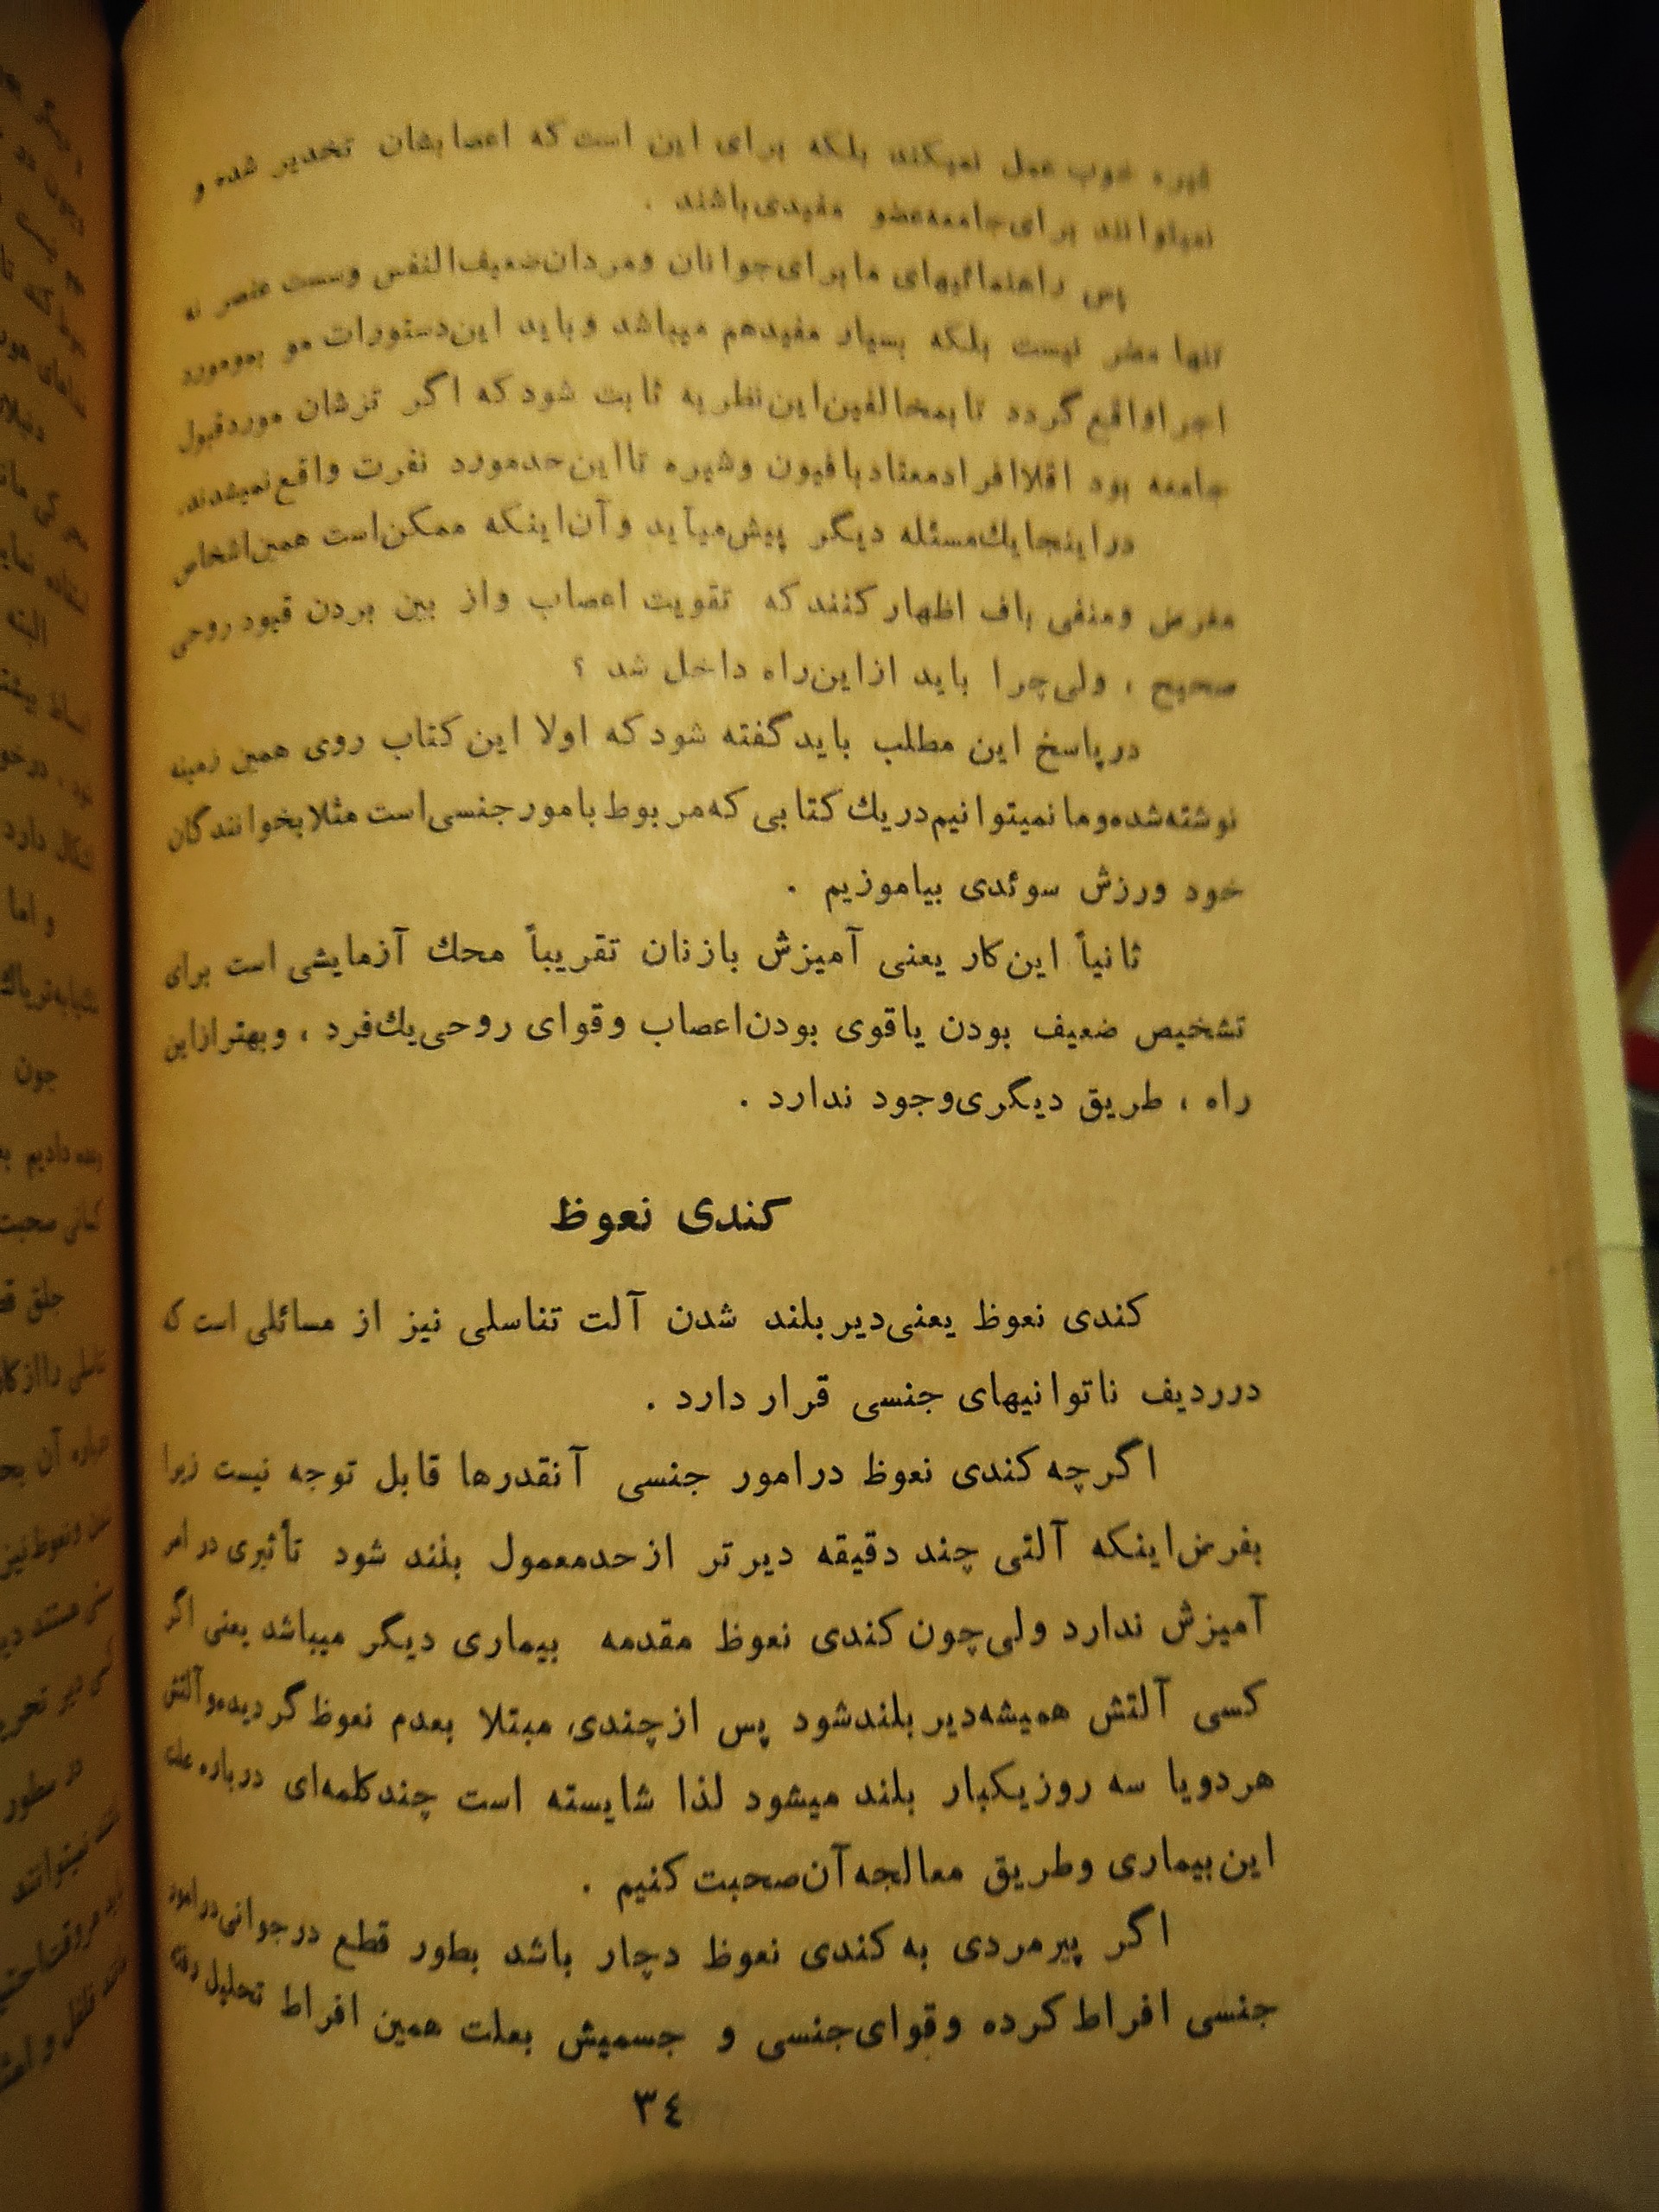 غیره خوب عمل نمیکند بلکه برای این است که اعصابشان تخدیر شده و
نمیتوانند برای جامعه عضو مفیدی باشند .
پس راهنمائیهای ما برای جوانان و مردان ضعیف‌النفس و سست عنصر نه
تنها مضر نیست بلکه بسیار مفید هم میباشد و باید این دستورات مو بمو مورد
اجرا واقع گردد تا بمخالفین این نظریه ثابت شود که اگر تزشان مورد قبول
جامعه بود اقلا افراد معتاد بافیون و شیره تا این حد مورد نفرت واقع نمیشدند.
در اینجا یك مسئله دیگر پیش میآید و آن اینکه ممکن است همین اشخاص
مغرض و منفی باف اظهار کنند که تقویت اعصاب و از بین بردن قیود روحی
صحیح ، ولی چرا باید از این راه داخل شد ؟
در پاسخ این مطلب باید گفته شود که اولا این کتاب روی همین زمینه
نوشته شده و ما نمیتوانیم در یك کتابی که مربوط بامور جنسی است مثلا بخوانندگان
خود ورزش سوئدی بیاموزیم .
ثانیاً این کار یعنی آمیزش با زنان تقریباً محك آزمایشی است برای
تشخیص ضعیف بودن یا قوی بودن اعصاب و قوای روحی یك فرد ، و بهتر از این
راه ، طریق دیگری وجود ندارد .
کندی نعوظ
کندی نعوظ یعنی دیر بلند شدن آلت تناسلی نیز از مسائلی است که
در ردیف ناتوانیهای جنسی قرار دارد .
اگرچه کندی نعوظ در امور جنسی آنقدرها قابل توجه نیست زیرا
بفرض اینکه آلتی چند دقیقه دیرتر از حد معمول بلند شود تأثیری در امر
آمیزش ندارد ولی چون کندی نعوظ مقدمه بیماری دیگر میباشد یعنی اگر
کسی آلتش همیشه دیر بلند شود پس از چندی مبتلا بعدم نعوظ گردیده و آلتش
هر دو یا سه روز یکبار بلند میشود لذا شایسته است چند کلمه‌ای درباره علت
این بیماری و طریق معالجه آن صحبت کنیم .
اگر پیرمردی به کندی نعوظ دچار باشد بطور قطع در جوانی در امور
جنسی افراط کرده و قوای جنسی و جسمیش بعلت همین افراط تحلیل رفته
٣٤